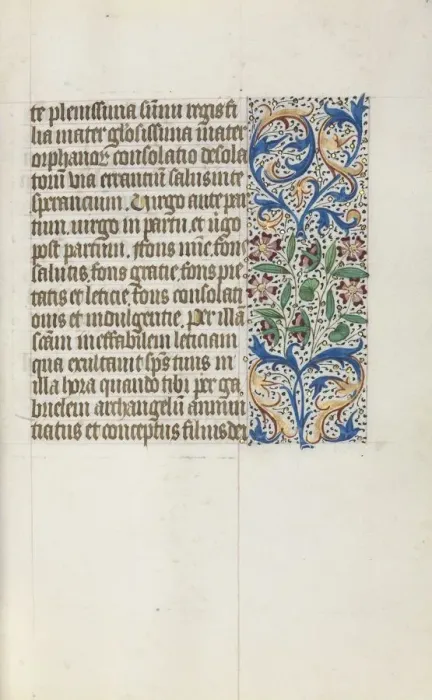 te plenissima sūmi regis fi
lia mater glosissima mater
orphanoꝝ consolatio desola
torū via errantiū salus in te
sperancium. Uirgo ante par
tum. uirgo in partu. et uĝo
post partum. ffons mīe. fons
salutis. fons gratie. fons pie
tatis et leticie. fons consolati
onis et indulgentie. Per illā
scām ineffabilem leticiam
qua exultauit sp̄s tuus in
illa hora quando tibi per ga
brielem archangelū annun
tiatus et conceptus filius dei